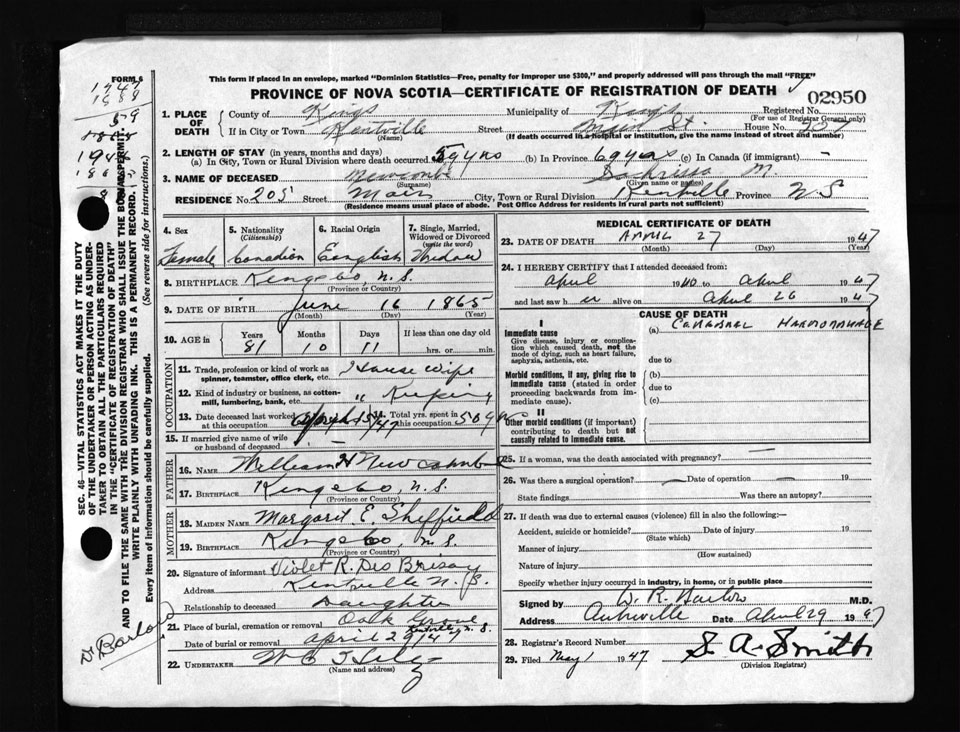 FORM 6
This form if placed in an envelope, marked "Dominion Statistics—Free, penalty for improper use $300," and properly addressed will pass through the mail "FREE"
PROVINCE OF NOVA SCOTIA—CERTIFICATE OF REGISTRATION OF DEATH
02950
1. PLACE OF DEATH
County of Kings Municipality of Kings Registered No.
(For use of Registrar General only)
If in City or Town Kentville Street Main St. House No.
(Name) (If death occurred in a hospital or institution, give the name instead of street and number)
2. LENGTH OF STAY (in years, months and days)
(a) In City, Town or Rural Division where death occurred 59 yrs (b) In Province 69 yrs (c) In Canada (if immigrant) -
3. NAME OF DECEASED Newcombe M.
(Surname) (Given name or names)
RESIDENCE No. 205 Street Main City, Town or Rural Division Kentville Province N S
(Residence means usual place of abode. Post Office Address for residents in rural parts not sufficient)
4. Sex 5. Nationality (Citizenship) 6. Racial Origin 7. Single, Married, Widowed or Divorced (write the word)
Female Canadian English Widow
8. BIRTHPLACE Kings Co, N.S.
(Province or Country)
9. DATE OF BIRTH June 16 1865
(Month) (Day) (Year)
10. AGE in Years Months Days If less than one day old
81 10 11 hrs. or min.
OCCUPATION
11. Trade, profession or kind of work as spinner, teamster, office clerk, etc. House wife
12. Kind of industry or business, as cotton-mill, lumbering, bank, etc. " Keeping
13. Date deceased last worked at this occupation April 15/47 Total yrs. spent in this occupation 50 yrs
15. If married give name of wife or husband of deceased -
FATHER
16. NAME William H Newcombe
17. BIRTHPLACE Kings Co, N.S.
(Province or Country)
MOTHER
18. MAIDEN NAME Margaret E. Sheffield
19. BIRTHPLACE Kings Co, N.S.
(Province or Country)
20. Signature of informant Violet R. Des Brisay
Address Kentville N.S.
Relationship to deceased Daughter
21. Place of burial, cremation or removal Oak Grove Kentville N.S.
Date of burial or removal April 29/47
22. UNDERTAKER
(Name and address)
MEDICAL CERTIFICATE OF DEATH
23. DATE OF DEATH April 27 1947
(Month) (Day) (Year)
24. I HEREBY CERTIFY that I attended deceased from
April 1940 to April 1947
and last saw her alive on April 26 1947
CAUSE OF DEATH
I
Immediate cause
Give disease, injury or complication which caused death, not the mode of dying, such as heart failure, asphyxia, asthenia, etc.
(a) Cerebral Haemorrhage
due to
Morbid conditions, if any, giving rise to immediate cause (stated in order proceeding backwards from immediate cause).
(b)
due to
(c)
II
Other morbid conditions (if important) contributing to death but not causally related to immediate cause.
25. If a woman, was the death associated with pregnancy? —
26. Was there a surgical operation? — Date of operation — 19
State findings Was there an autopsy?
27. If death was due to external causes (violence) fill in also the following:—
Accident, suicide or homicide? Date of injury 19
(State which)
Manner of injury
(How sustained)
Nature of injury
Specify whether injury occurred in industry, in home, or in public place
Signed by M.D.
Address April 29 1947
28. Registrar's Record Number
29. Filed May 1 1947 S. A. Smith
(Division Registrar)
SEC. 46—VITAL STATISTICS ACT MAKES IT THE DUTY
OF THE UNDERTAKER OR PERSON ACTING AS UNDERTAKER TO OBTAIN ALL THE PARTICULARS REQUIRED
IN THE "CERTIFICATE OF REGISTRATION OF DEATH"
AND TO FILE THE SAME WITH THE DIVISION REGISTRAR WHO SHALL ISSUE THE BURIAL PERMIT.
WRITE PLAINLY WITH UNFADING INK. THIS IS A PERMANENT RECORD.
Every item of information should be carefully supplied. (See reverse side for instructions.)
Dr Barlow